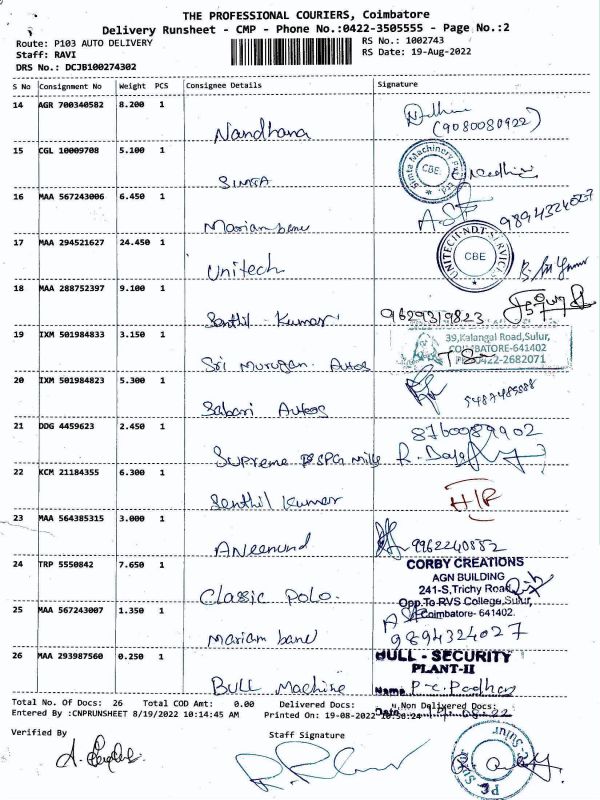 THE PROFESSIONAL COURIERS, Coimbatore
Delivery Runsheet - CMP - Phone No.:0422-3505555 - Page No.:2
Route: P103 AUTO DELIVERY
RS No.: 1002743
Staff: RAVI
RS Date: 19-Aug-2022
DRS No.: DCJB100274302
S No Consignment No Weight PCS Consignee Details Signature
14 AGR 700340582 8.200 1
(9080080922)
Nandhana
15 CGL 10009708 5.100 1
Simta Machinery CBE
SIMTA
16 MAA 567243006 6.450 1
9894324027
Mariam banu
17 MAA 294521627 24.450 1
UNITECH NDT-SERVICE CBE
Unitech
18 MAA 288752397 9.100 1
9629319823
Senthil Kumar
19 IXM 501984833 3.150 1
39,Kalangal Road,Sulur,
COIMBATORE-641402
PH:0422-2682071
Sri Murugan Autos
20 IXM 501984823 5.300 1
Sabari Autos
21 DDG 4459623 2.450 1
8760089902
Supreme SPG mills
22 KCM 21184355 6.300 1
Senthil Kumar
23 MAA 564385315 3.000 1
9962240832
24 TRP 5550842 7.650 1
CORBY CREATIONS
AGN BUILDING
241-S,Trichy Road,
Opp.To RVS College,Sulur,
Coimbatore- 641402.
Classic Polo.
25 MAA 567243007 1.350 1
9894324027
Mariam banu
26 MAA 293987560 0.250 1
BULL - SECURITY
PLANT-II
Name
BULL Machine
Total No. Of Docs: 26 Total COD Amt: 0.00 Delivered Docs: Non Delivered Docs:
Date
Entered By :CNPRUNSHEET 8/19/2022 10:14:45 AM Printed On: 19-08-2022 10:50:24
Verified By
Staff Signature